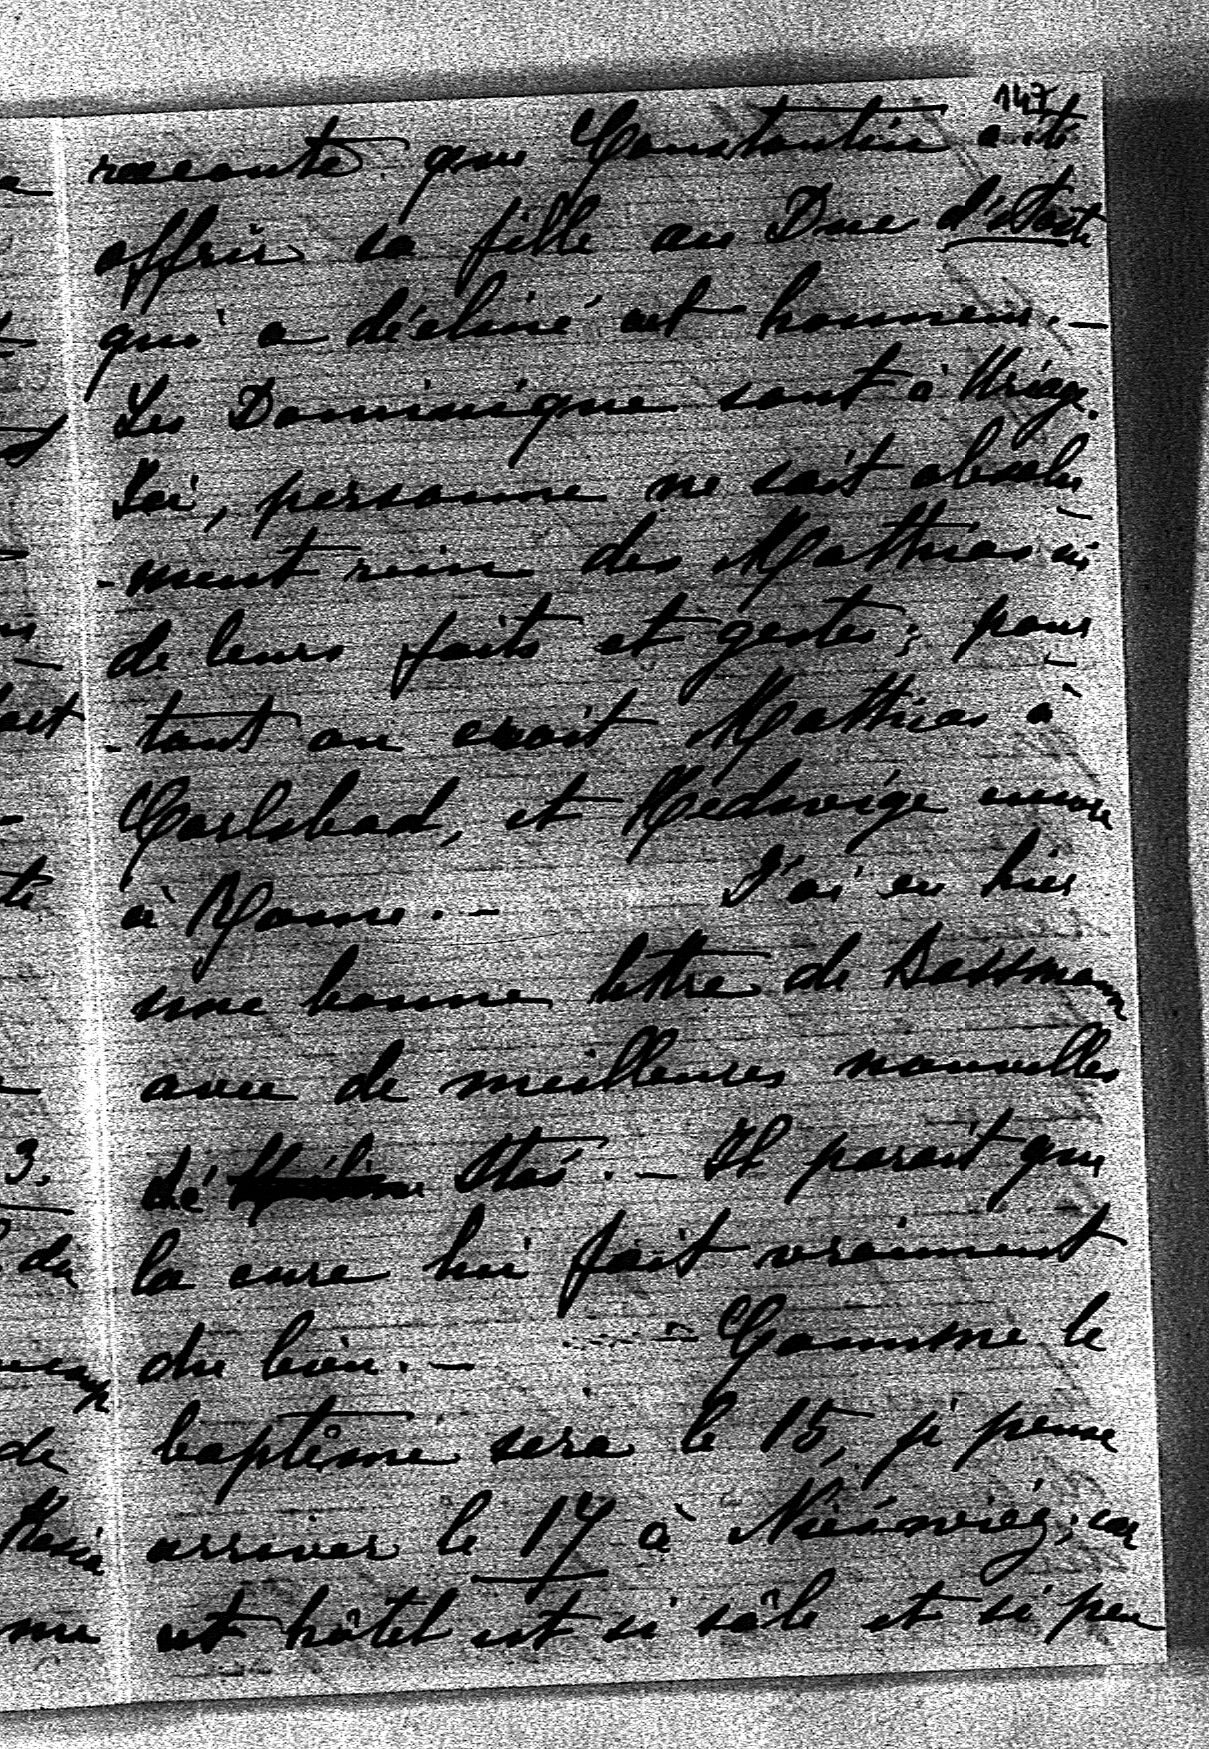 147
raconte que Constantin a été
offrir sa fille au Duc d'Aoste
qui a décliné cet honneur. —
Les Dominique sont à Uriage.
Ici, personne ne sait absolu
-ment rien des Mathias ni
de leurs faits et gestes; pour
-tant on croit Mathias à
Carlsbad, et Hedwige encore
à Rome. — J'ai eu hier
une bonne lettre de Bassmann
avec de meilleures nouvelles
de Stas. — Il parait que
la cure lui fait vraiment
du bien. — Comme le
baptême sera le 15, je pense
arriver le 17 à Nieśwież, car
cet hôtel est si sâle et si peu